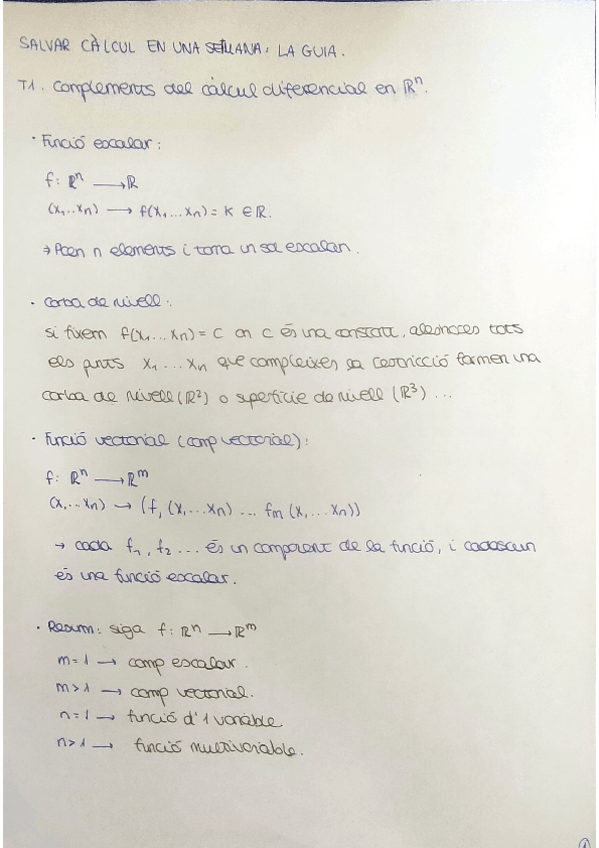 SALVAR CÀLCUL EN UNA SETMANA: LA GUIA.
T1. Complements del càlcul diferencial en ℝⁿ.
· Funció escalar:
f: ℝⁿ → ℝ
(x₁...xₙ) → f(x₁...xₙ) = K ∈ ℝ.
→ Agafen n elements i torna un sol escalar.
· Corba de nivell:
si fixem f(x₁...xₙ) = C on C és una constant, aleshores tots
els punts x₁...xₙ que compleixen la restricció formen una
corba de nivell (ℝ²) o superfície de nivell (ℝ³) ...
· Funció vectorial (camp vectorial):
f: ℝⁿ → ℝᵐ
(x₁...xₙ) → (f₁(x₁...xₙ) ... fₘ(x₁...xₙ))
→ cada f₁, f₂ ... és un component de la funció, i cadascun
és una funció escalar.
· Resum: siga f: ℝⁿ → ℝᵐ
m=1 → camp escalar.
m>1 → camp vectorial.
n=1 → funció d'1 variable
n>1 → funció multivariable.
1